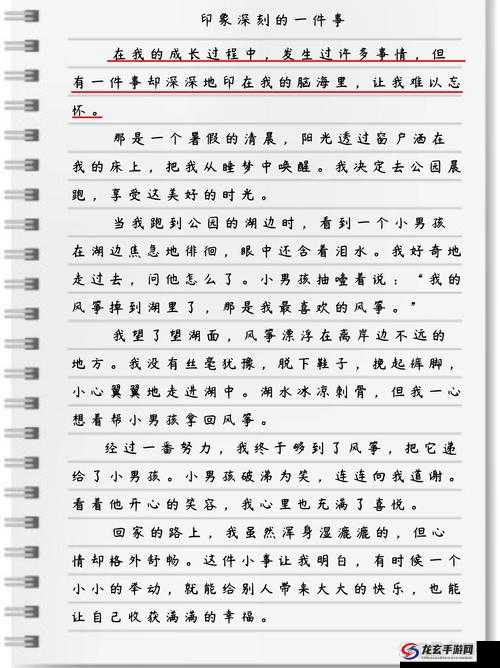 印象深刻的一件事
在我的成长过程中，发生过许多事情，但
有一件事却深深地印在我的脑海里，让我难以忘
怀。
那是一个暑假的清晨，阳光透过窗户洒在
我的床上，把我从睡梦中唤醒。我决定去公园晨
跑，享受这美好的时光。
当我跑到公园的湖边时，看到一个小男孩
在湖边焦急地徘徊，眼中还含着泪水。我好奇地
走过去，问他怎么了。小男孩抽噎着说：“我的
风筝掉到湖里了，那是我最喜欢的风筝。”
我望了望湖面，风筝漂浮在离岸边不远的
地方。我没有丝毫犹豫，脱下鞋子，挽起裤脚，
小心翼翼地走进湖中。湖水冰凉刺骨，但我一心
想着帮小男孩拿回风筝。
经过一番努力，我终于够到了风筝，把它递
给了小男孩。小男孩破涕为笑，连连向我道谢。
看着他开心的笑容，我心里也充满了喜悦。
回家的路上，我虽然浑身湿漉漉的，但心
情却格外舒畅。这件小事让我明白，有时候一个
小小的举动，就能给别人带来大大的快乐，也能
让自己收获满满的幸福。
龙玄手游网